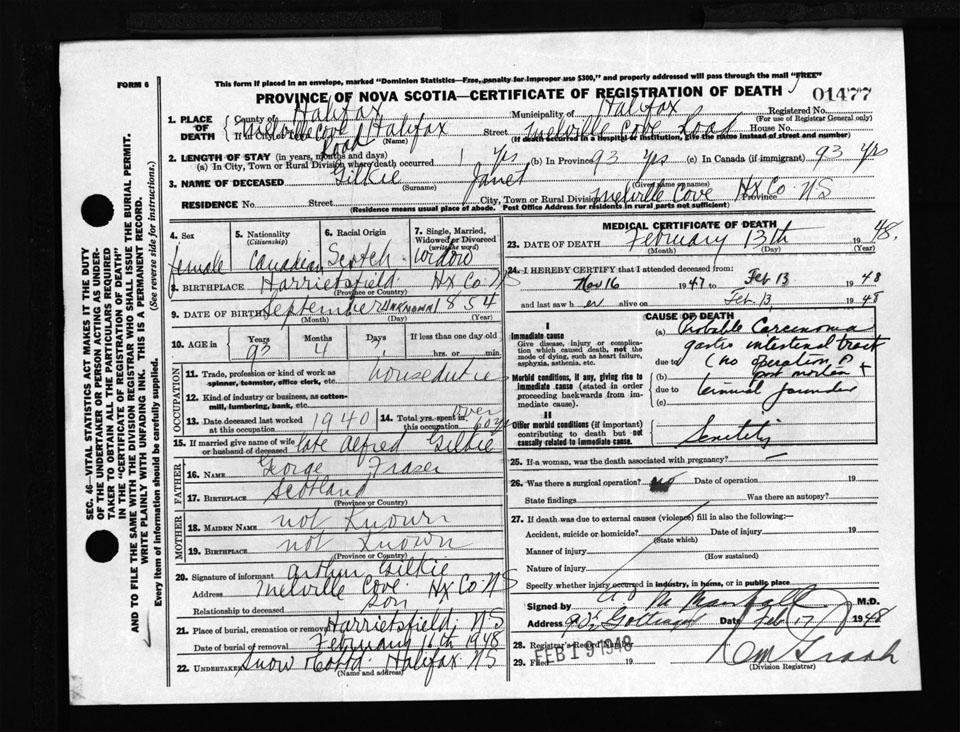 FORM 6
This form if placed in an envelope, marked "Dominion Statistics—Free, penalty for improper use $300," and properly addressed will pass through the mail "FREE"
PROVINCE OF NOVA SCOTIA—CERTIFICATE OF REGISTRATION OF DEATH
01477
SEC. 46—VITAL STATISTICS ACT MAKES IT THE DUTY
OF THE UNDERTAKER OR PERSON ACTING AS UNDER-
TAKER TO OBTAIN ALL THE PARTICULARS REQUIRED
IN THE "CERTIFICATE OF REGISTRATION OF DEATH"
AND TO FILE THE SAME WITH THE DIVISION REGISTRAR WHO SHALL ISSUE THE BURIAL PERMIT.
WRITE PLAINLY WITH UNFADING INK. THIS IS A PERMANENT RECORD.
Every item of information should be carefully supplied. (See reverse side for instructions.)
1. PLACE OF DEATH
County of Halifax Municipality of Halifax Registered No.
(For use of Registrar General only)
Melville Cove Road Halifax (Name) Street Melville Cove Road House No.
(If death occurred in a hospital or institution, give the name instead of street and number)
2. LENGTH OF STAY (in years, months and days)
(a) In City, Town or Rural Division where death occurred 1 yrs (b) In Province 93 yrs (c) In Canada (if immigrant) 93 yrs
3. NAME OF DECEASED Gilkie Janet
(Surname) (Given name or names)
RESIDENCE No. Street City, Town or Rural Division Melville Cove Hx Co. NS Province
(Residence means usual place of abode. Post Office Address for residents in rural parts not sufficient)
4. Sex 5. Nationality (Citizenship) 6. Racial Origin 7. Single, Married, Widowed or Divorced (write the word)
female Canadian Scotch widow
8. BIRTHPLACE Harrietsfield Hx Co. NS
(Province or Country)
9. DATE OF BIRTH September unknown 1854
(Month) (Day) (Year)
10. AGE in Years Months Days If less than one day old
93 hrs. or min.
OCCUPATION
11. Trade, profession or kind of work as spinner, teamster, office clerk, etc. houseduties
12. Kind of industry or business, as cotton-mill, lumbering, bank, etc.
13. Date deceased last worked at this occupation 1940 14. Total yrs. spent in this occupation over 60 yrs
15. If married give name of wife or husband of deceased late Alfred Gilkie
FATHER
16. NAME George Fraser
17. BIRTHPLACE Scotland
(Province or Country)
MOTHER
18. MAIDEN NAME not known
19. BIRTHPLACE not known
(Province or Country)
20. Signature of informant Arthur Gilkie
Address Melville Cove Hx Co. NS
Relationship to deceased son
21. Place of burial, cremation or removal Harrietsfield NS
Date of burial or removal February 16th 1948
22. Undertaker Snow Halifax NS
(Name and address)
MEDICAL CERTIFICATE OF DEATH
23. DATE OF DEATH February 13th 1948.
(Month) (Day)
24. I HEREBY CERTIFY that I attended deceased from:
Nov 16 1947 to Feb 13 1948
and last saw her alive on Feb. 13 1948
CAUSE OF DEATH
I
Immediate cause
Give disease, injury or complication which caused death, not the mode of dying, such as heart failure, asphyxia, asthenia, etc.
(a) Probable Carcinoma
gastro intestinal tract
due to (no operation
Morbid conditions, if any, giving rise to immediate cause (stated in order proceeding backwards from immediate cause).
(b) post mortem
due to terminal jaundice
(c)
II
Other morbid conditions (if important) contributing to death but not causally related to immediate cause.
Senility
25. If a woman, was the death associated with pregnancy? —
26. Was there a surgical operation? no Date of operation 19
State findings Was there an autopsy?
27. If death was due to external causes (violence) fill in also the following:—
Accident, suicide or homicide? Date of injury 19
(State which)
Manner of injury
(How sustained)
Nature of injury
Specify whether injury occurred in industry, in home, or in public place
Signed by M.D.
Address Date Feb 17 1948
28. Registrar's Record Number
29. Filed 19
FEB 19 1948
(Division Registrar)